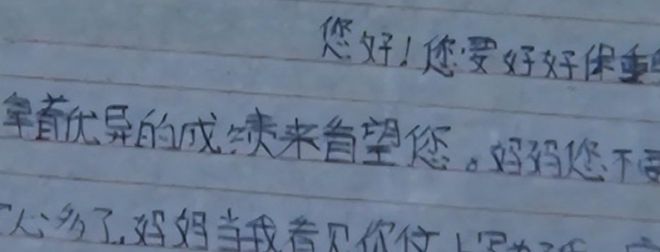 您好！您要好好保重
拿着优异的成绩来看望您。妈妈您不要
心多了，妈妈当我看见你